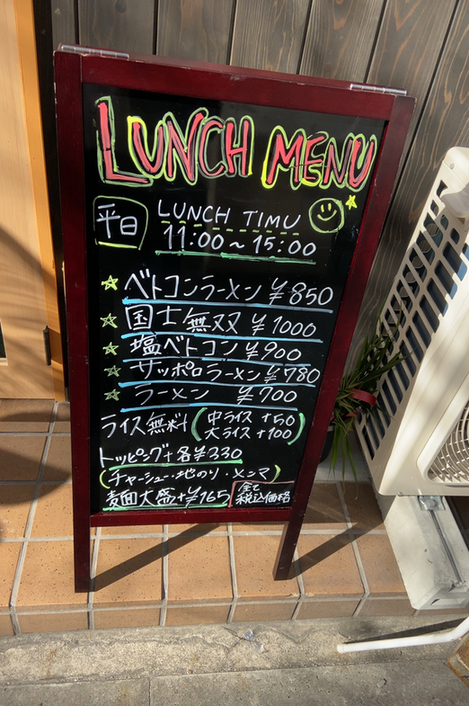 LUNCH MENU
平日
LUNCH TIMU
11:00～15:00
☆ベトコンラーメン ¥850
☆国士無双 ¥1000
☆塩ベトコン ¥900
☆サッポロラーメン ¥780
☆ラーメン ¥700
ライス無料(中ライス+50
大ライス+100)
トッピング+各¥330
(チャーシュー・地のり・メンマ)
麺大盛+¥165
全て
税込価格